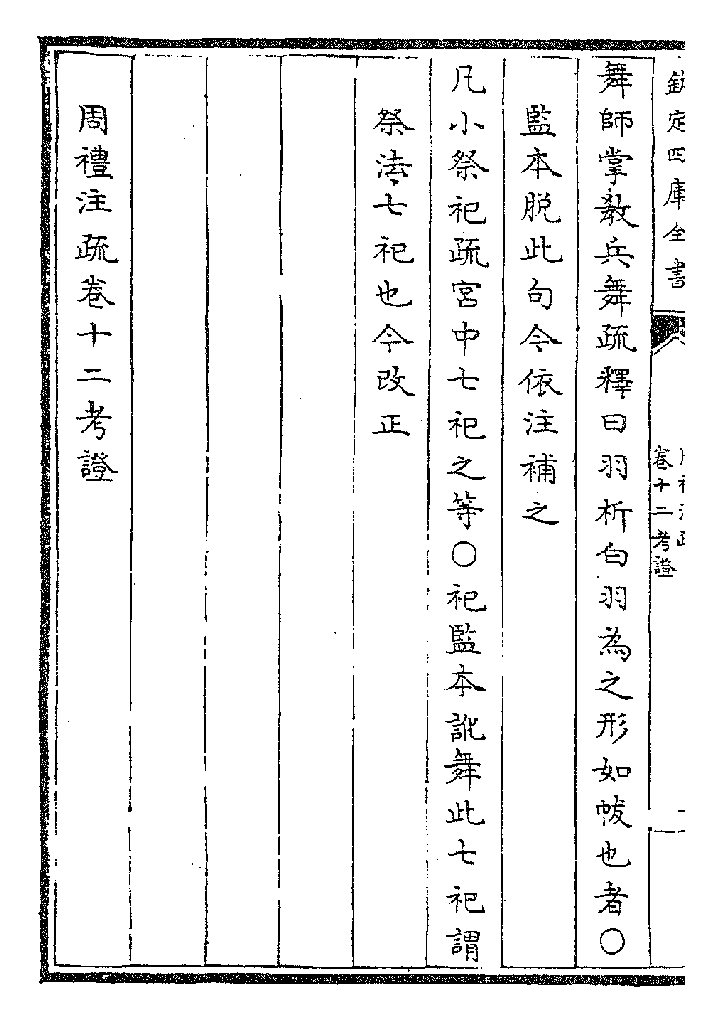 欽定四庫全書
卷十二考證
舞師掌教兵舞疏釋曰羽析白羽為之形如帗也者〇
監本脱此句今依注補之
凡小祭祀疏宮中七祀之等〇祀監本訛舞此七祀謂
祭法七祀也今改正
周禮注疏卷十二考證